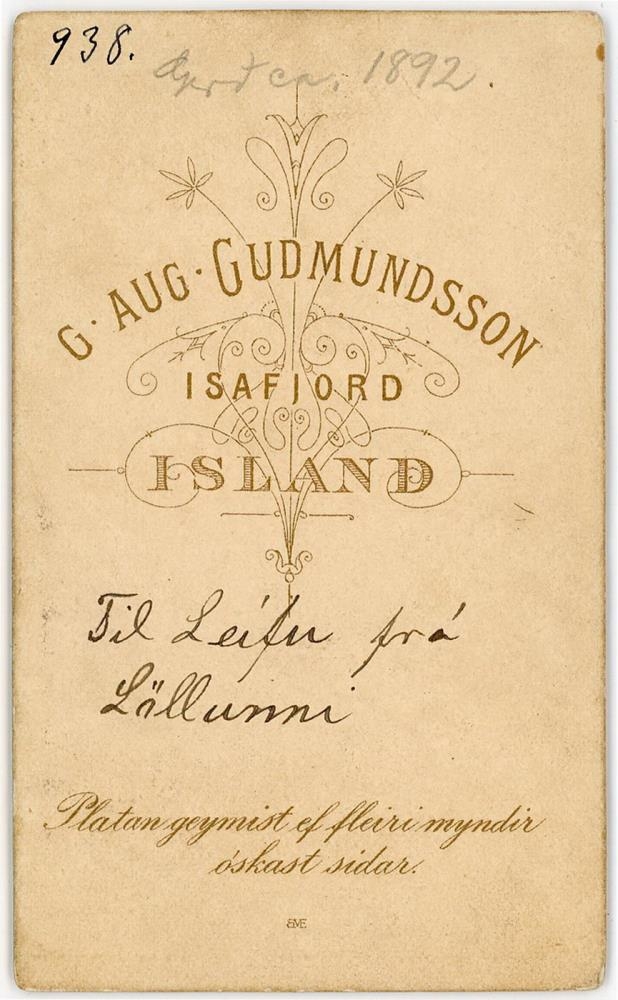 938.
Gerð ca. 1892.
G. AUG. GUDMUNDSSON
ISAFJORD
ISLAND
Til Leifu frá
Löllunni
Platan geymist ef fleiri myndir
óskast sidar.